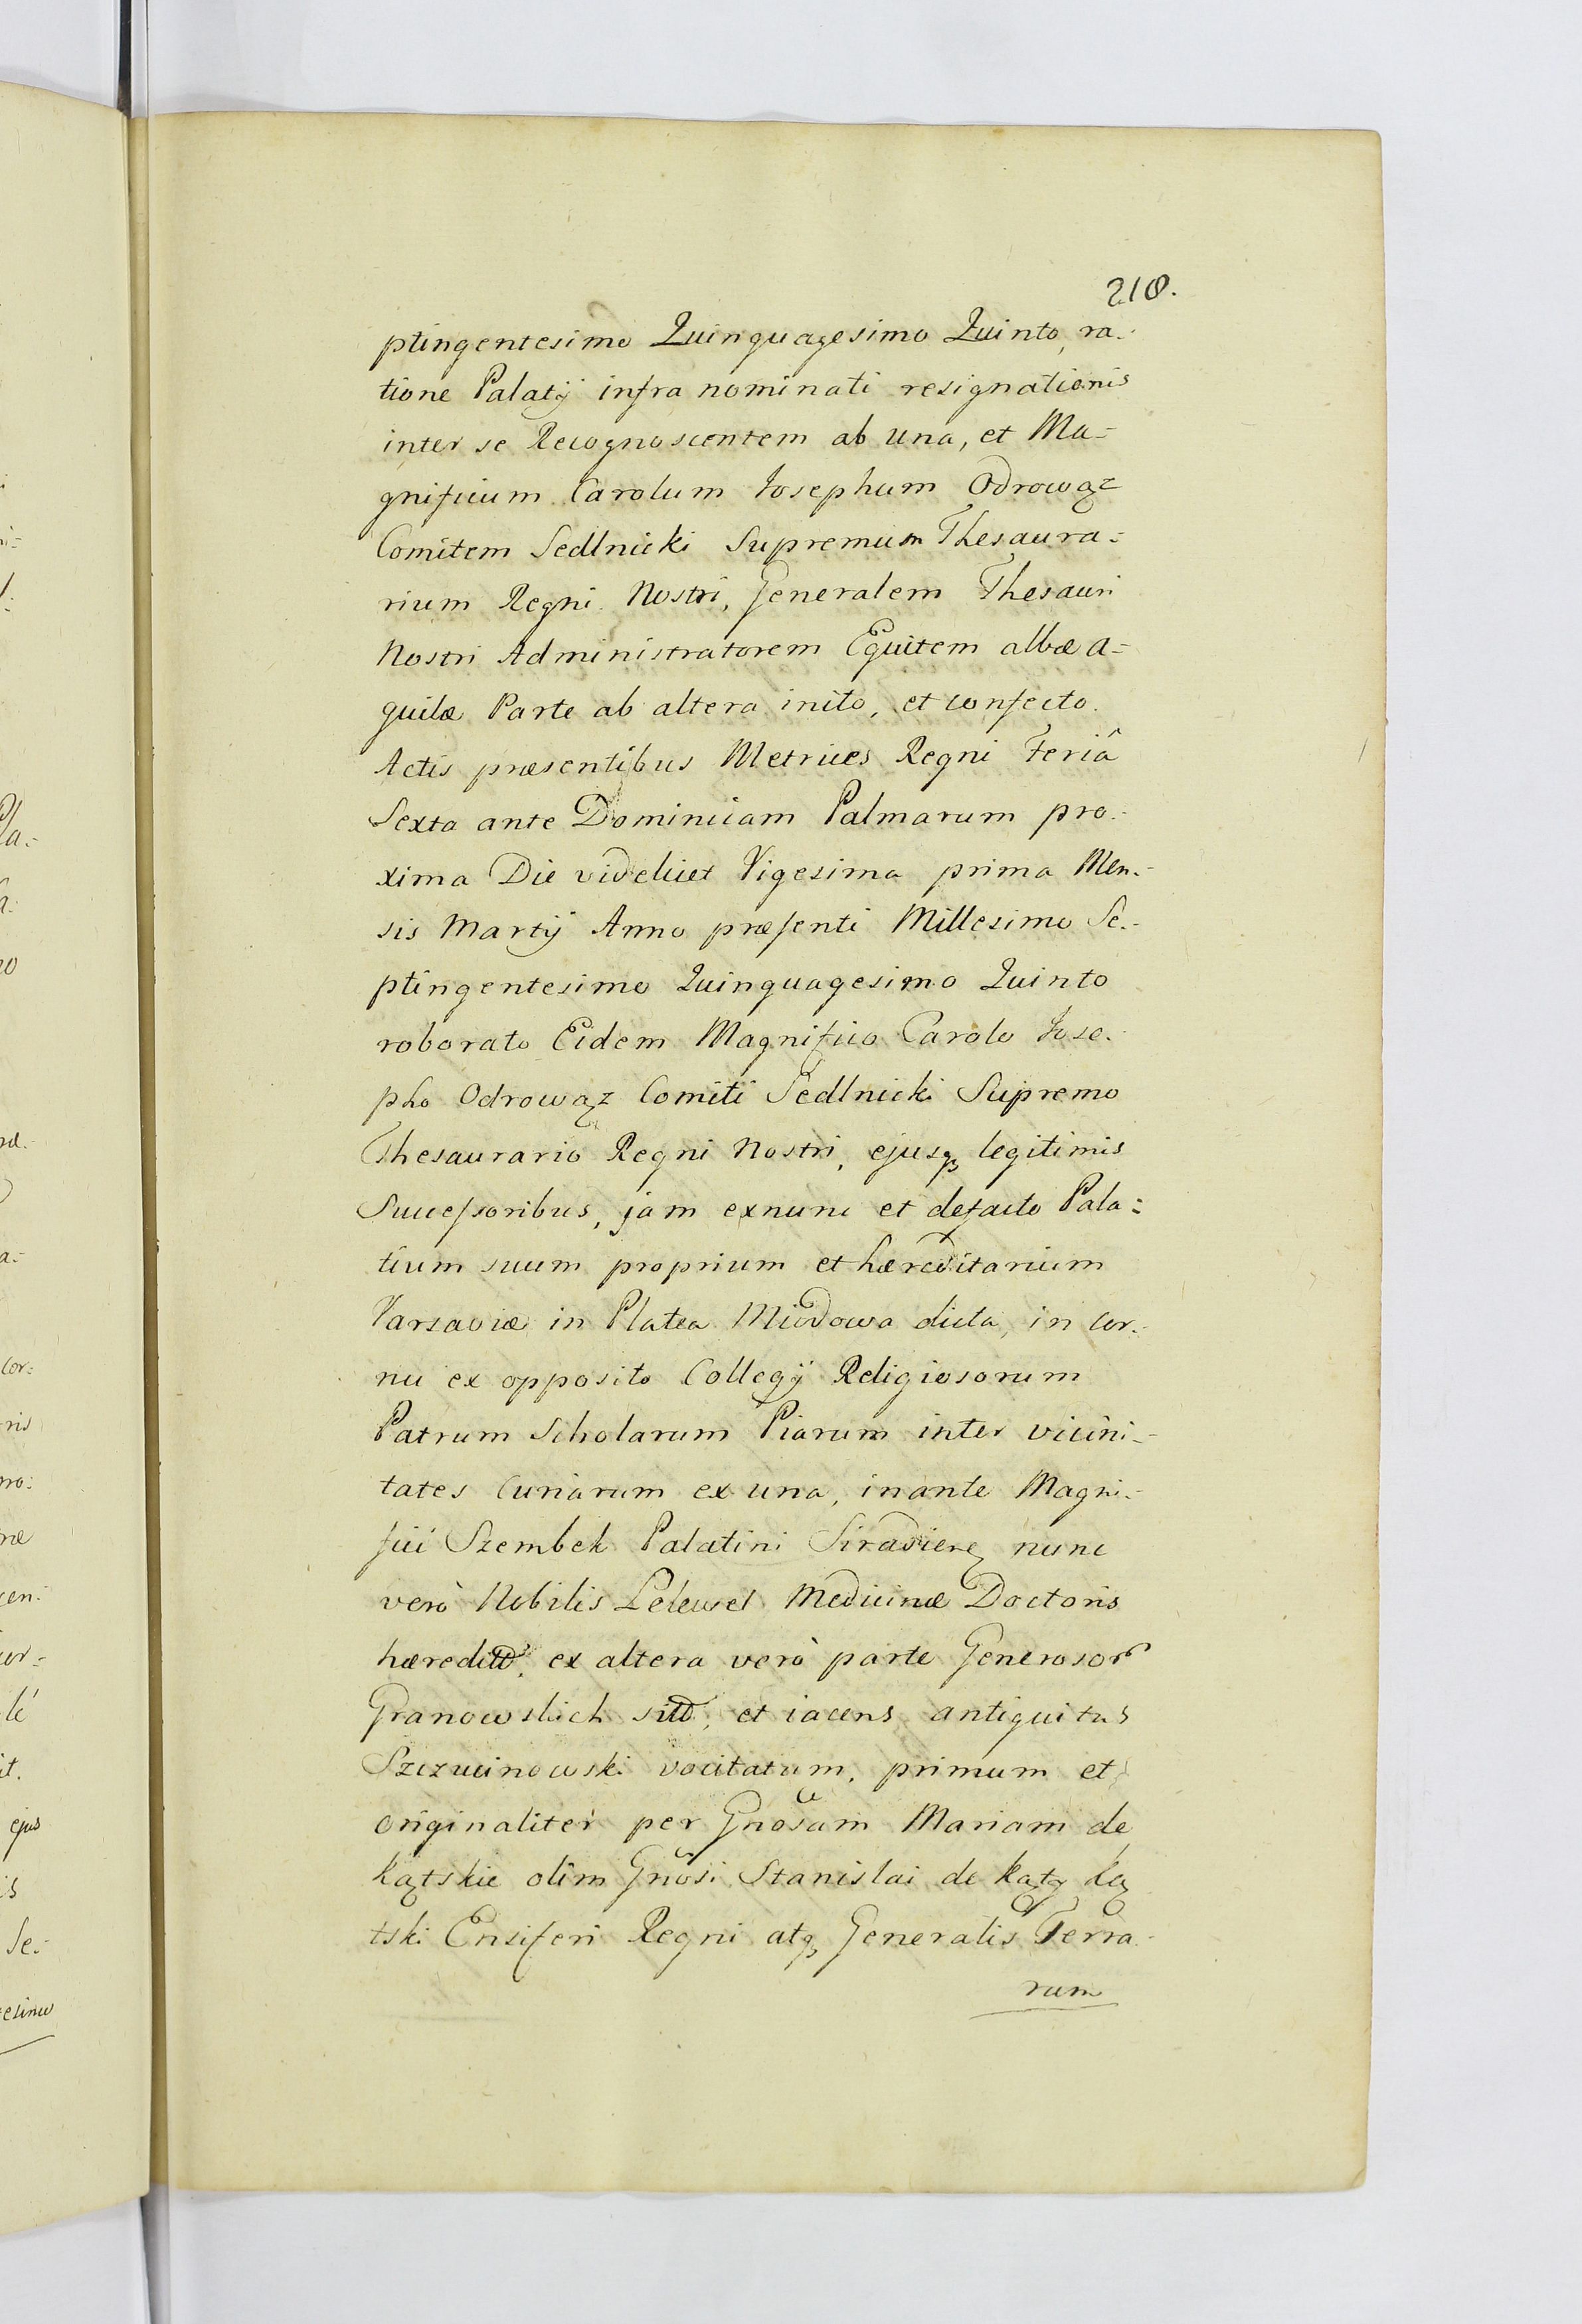 218.
ptingentesimo Quinquagesimo Quinto, ra-
tione Palatÿ infra nominati resignationis
inter se Recognoscentem ab una, et Ma=
gnificum Carolum Josephum Odrowąz
Comitem Sedlnicki Supremum Thesaura=
rium Regni Nostri, Generalem Thesauri
Nostri Administratorem Equitem albæ A=
quilæ Parte ab altera inito, et confecto.
Actis præsentibus Metrices Regni Feriâ
Sexta ante Dominicam Palmarum pro-
xima Die videlicet Vigesima prima Men-
sis Martÿ Anno præsenti Millesimo Se-
ptingentesimo Quinquagesimo Quinto
roborato Eidem Magnifico Carolo Jose-
pho Odrowąz Comiti Sedlnicki Supremo
Thesaurario Regni Nostri, ejusq legitimis
Successoribus, jam exnunc et defacto Pala=
tium suum proprium et hæreditarium
Varsaviæ in Platea Miodowa dicta, in cor-
nu ex opposito Collegÿ Religiosorum
Patrum Scholarum Piarum inter vicini-
tates Curiarum ex una, inante Magni-
fici Szembek Palatini Siradien nunc
verò Nobilis Lelewel Medicinæ Doctoris
hæredit, ex altera verò parte Generosor
Granowskich sit, et iacens antiquitus
Szczucinowski vocitatum, primum et
originaliter per Gnosam Mariam de
Kątskie olim Gnosi Stanislai de Kąty Ką
tski Ensiferi Regni atq Generalis Terra-
rum
ejus
Se-